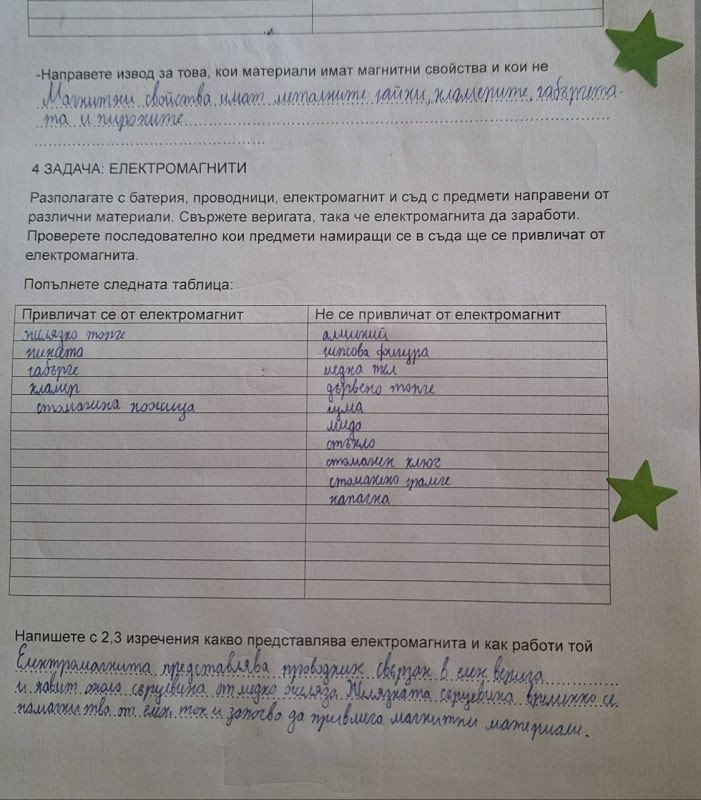 -Направете извод за това, кои материали имат магнитни свойства и кои не
Магнитни свойства имат металните гайки, кламерите, габърчета-
та и пирожите
4 ЗАДАЧА: ЕЛЕКТРОМАГНИТИ
Разполагате с батерия, проводници, електромагнит и съд с предмети направени от
различни материали. Свържете веригата, така че електромагнита да заработи.
Проверете последователно кои предмети намиращи се в съда ще се привличат от
електромагнита.
Попълнете следната таблица:
Привличат се от електромагнит
Не се привличат от електромагнит
желязко топче
алминий
гипсова фигура
габърче
медна тел
кламер
дървено топче
стоманена ножица
гума
мида
стъкло
стоманен ключ
стоманено грамче
капачка
Напишете с 2,3 изречения какво представлява електромагнита и как работи той
Електромагнита представлява проводник свързан в елек верига
и навит около сърцевина от медко желязо. Желязката сърцевина временно се
намагнитва от елек. ток и започва да привлича магнитни материали.